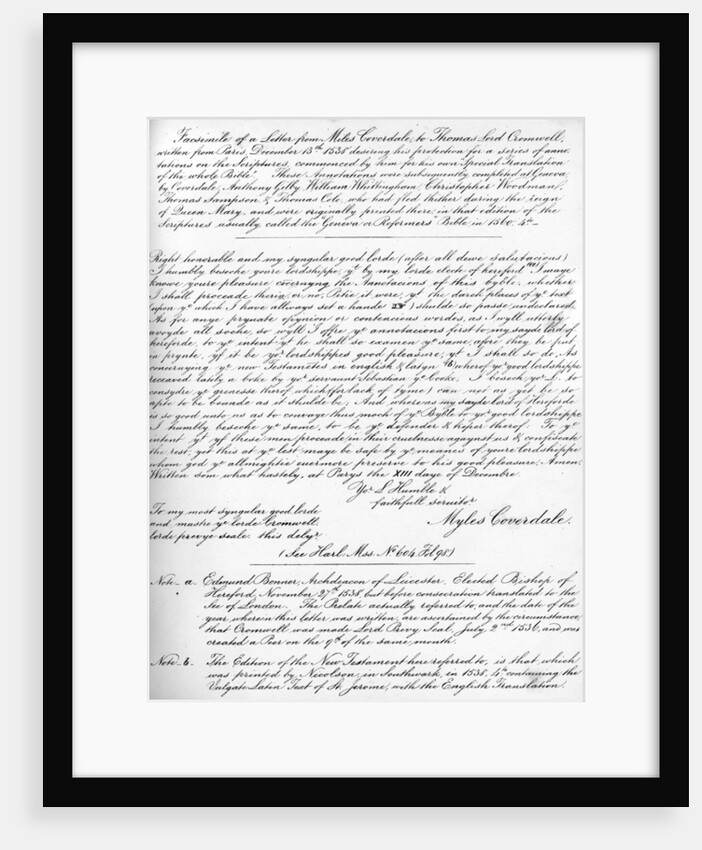 Facsimile of a Letter from Miles Coverdale, to Thomas Lord Cromwell,
written from Paris, December 13th 1538 desiring his protection for a series of anno
tations on the Scriptures, commenced by him for his own "Special Translation
of the whole Bible". These Annotations were subsequently completed at Geneva,
by Coverdale, Anthony Gilby, William Whittingham, Christopher Woodman,
Thomas Sampson, & Thomas Cole, who had fled thither during the reign
of Queen Mary, and were originally printed there, in that edition of the
Scriptures usually called the "Geneva or Reformers" Bible in 1560. 4to
Right honorable and my syngular good lorde (after all dewe salutacions)
I humbly beseche youre lordshippe, yt by my lorde electe of hereford (a) I maye
knowe youre pleasure concernyng the Annotacions of this byble, whether
I shall proceade therin, or no. Petie it were, yt the darck places of ye text
(upon ye which I have allwaye set a hande) shulde so passe undeclared.
As for anye pryuate opynion or contencious wordes, as I wyll utterly
avoyde all soche, so wyll I offre ye annotacions first to my sayde lord of
hereforde, to ye intent yt he shall so examen ye same, afore they be put
in prynte, yf it be yor lordshippes good pleasure, yt I shall so do. As
concernyng ye new Testamētes in english & latyn (b) wherof yor good lordshippe
receaved lately a boke by yor servaunt Sebastian ye Cooke, I besech yor L. to
consydre ye greenesse therof which (for lack of tyme) can not as yet be so
apte to be bounde as it shulde be; And wheras my sayde lord of Hereforde
is so good unto us as to convaye thus moch of ye Byble to yor good lordshippe
I humbly beseche ye same, to be ye defender & keper therof. To ye
intent yt yf these men proceade in their cruelnesse agaynst us & confiscate
the rest, yet this at ye lest maye be safe by ye meanes of youre lordshippe
whom god ye allmightie evermore preserve to his good pleasure. Amen.
Written som what hastely, at Parys the XIII daye of Decembre.
Yor L. Humble &
faithfull seruitor
Myles Coverdale.
To my most syngular good lorde
and mastre ye lorde Cromwell,
lorde prevye seale. this delyr
(See Harl. Mss. No 604 Fol 98)
Note a. Edmund Bonner, Archdeacon of Leicester, Elected Bishop of
Hereford, November 27th 1538, but before consecration translated to the
See of London. The Prelate actually referred to, and the date of the
year, wherein this letter was written, are ascertained by the circumstance,
that Cromwell was made Lord Prevy Seal, July 2nd 1536, and was
created a Peer on the 9th of the same, month.
Note b. The Edition of the New Testament here referred to, is that, which
was printed by Nicolson, in Southwark, in 1538, 4to containing the
Vulgate Latin Text of St. Jerome, with the English Translation.